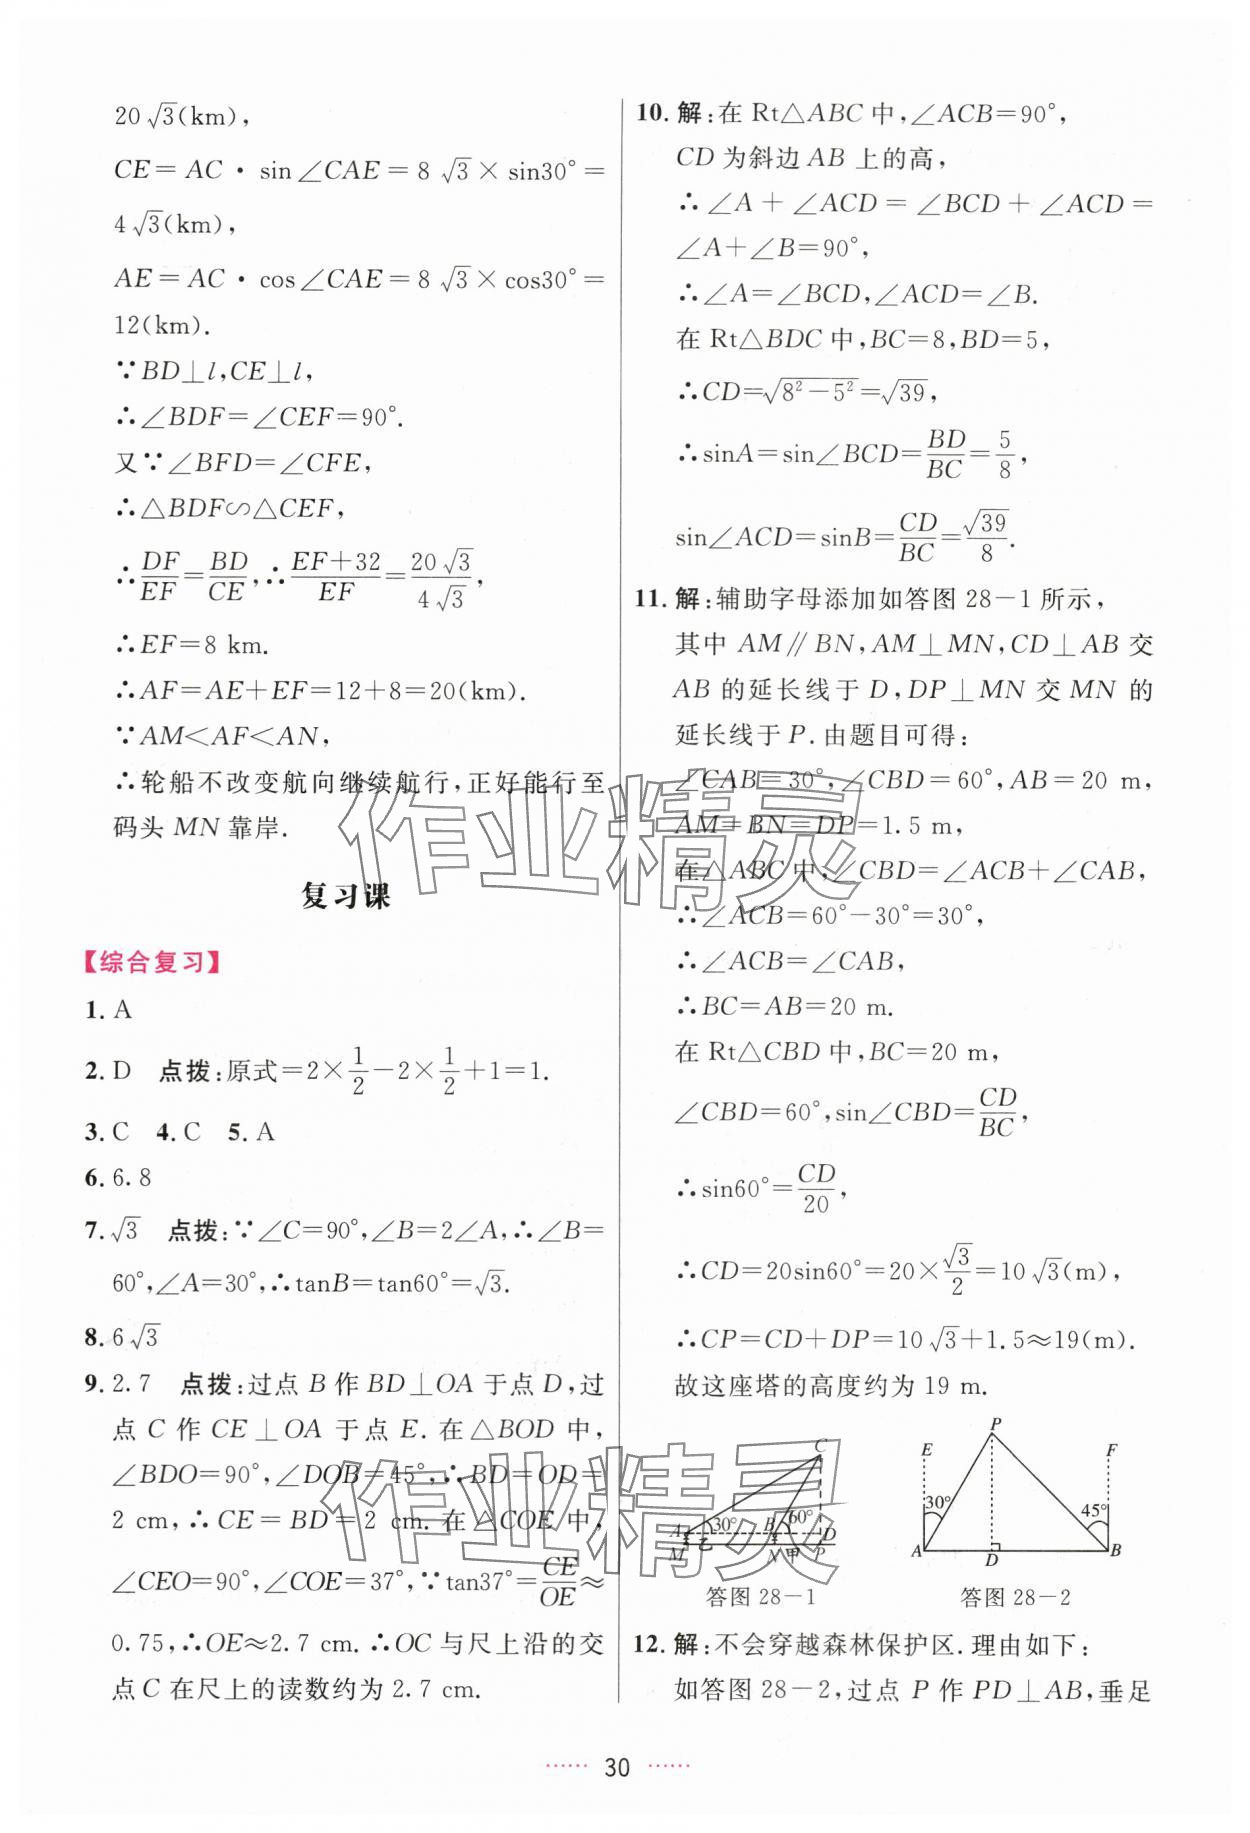 20√3(km),
CE=AC·sin∠CAE=8√3×sin30°=
4√3(km),
AE=AC·cos∠CAE=8√3×cos30°=
12(km).
∵BD⊥l,CE⊥l,
∴∠BDF=∠CEF=90°.
又∵∠BFD=∠CFE,
∴△BDF∽△CEF,
∴DF/EF=BD/CE,∴(EF+32)/EF=20√3/4√3,
∴EF=8 km.
∴AF=AE+EF=12+8=20(km).
∵AM<AF<AN,
∴轮船不改变航向继续航行,正好能行至
码头MN靠岸.
复习课
【综合复习】
1.A
2.D 点拨:原式=2×1/2-2×1/2+1=1.
3.C 4.C 5.A
6.6.8
7.√3 点拨:∵∠C=90°,∠B=2∠A,∴∠B=
60°,∠A=30°,∴tanB=tan60°=√3.
8.6√3
9.2.7 点拨:过点B作BD⊥OA于点D,过
点C作CE⊥OA于点E.在△BOD中,
∠BDO=90°,∠DOB=45°,∴BD=OD=
2 cm,∴CE=BD=2 cm.在△COE中,
∠CEO=90°,∠COE=37°,∵tan37°=CE/OE≈
0.75,∴OE≈2.7 cm.∴OC与尺上沿的交
点C在尺上的读数约为2.7 cm.
10.解:在Rt△ABC中,∠ACB=90°,
CD为斜边AB上的高,
∴∠A+∠ACD=∠BCD+∠ACD=
∠A+∠B=90°,
∴∠A=∠BCD,∠ACD=∠B.
在Rt△BDC中,BC=8,BD=5,
∴CD=√(8²-5²)=√39,
∴sinA=sin∠BCD=BD/BC=5/8,
sin∠ACD=sinB=CD/BC=√39/8.
11.解:辅助字母添加如答图28-1所示,
其中AM∥BN,AM⊥MN,CD⊥AB交
AB的延长线于D,DP⊥MN交MN的
延长线于P.由题目可得:
∠CAB=30°,∠CBD=60°,AB=20 m,
AM=BN=DP=1.5 m,
在△ABC中,∠CBD=∠ACB+∠CAB,
∴∠ACB=60°-30°=30°,
∴∠ACB=∠CAB,
∴BC=AB=20 m.
在Rt△CBD中,BC=20 m,
∠CBD=60°,sin∠CBD=CD/BC,
∴sin60°=CD/20,
∴CD=20sin60°=20×√3/2=10√3(m),
∴CP=CD+DP=10√3+1.5≈19(m).
故这座塔的高度约为19 m.
C
A 30° B 60° D
M 乙 N 甲 P
答图28-1
P
E F
30° 45°
A D B
答图28-2
12.解:不会穿越森林保护区.理由如下:
如答图28-2,过点P作PD⊥AB,垂足
30
作业精灵
作业精灵